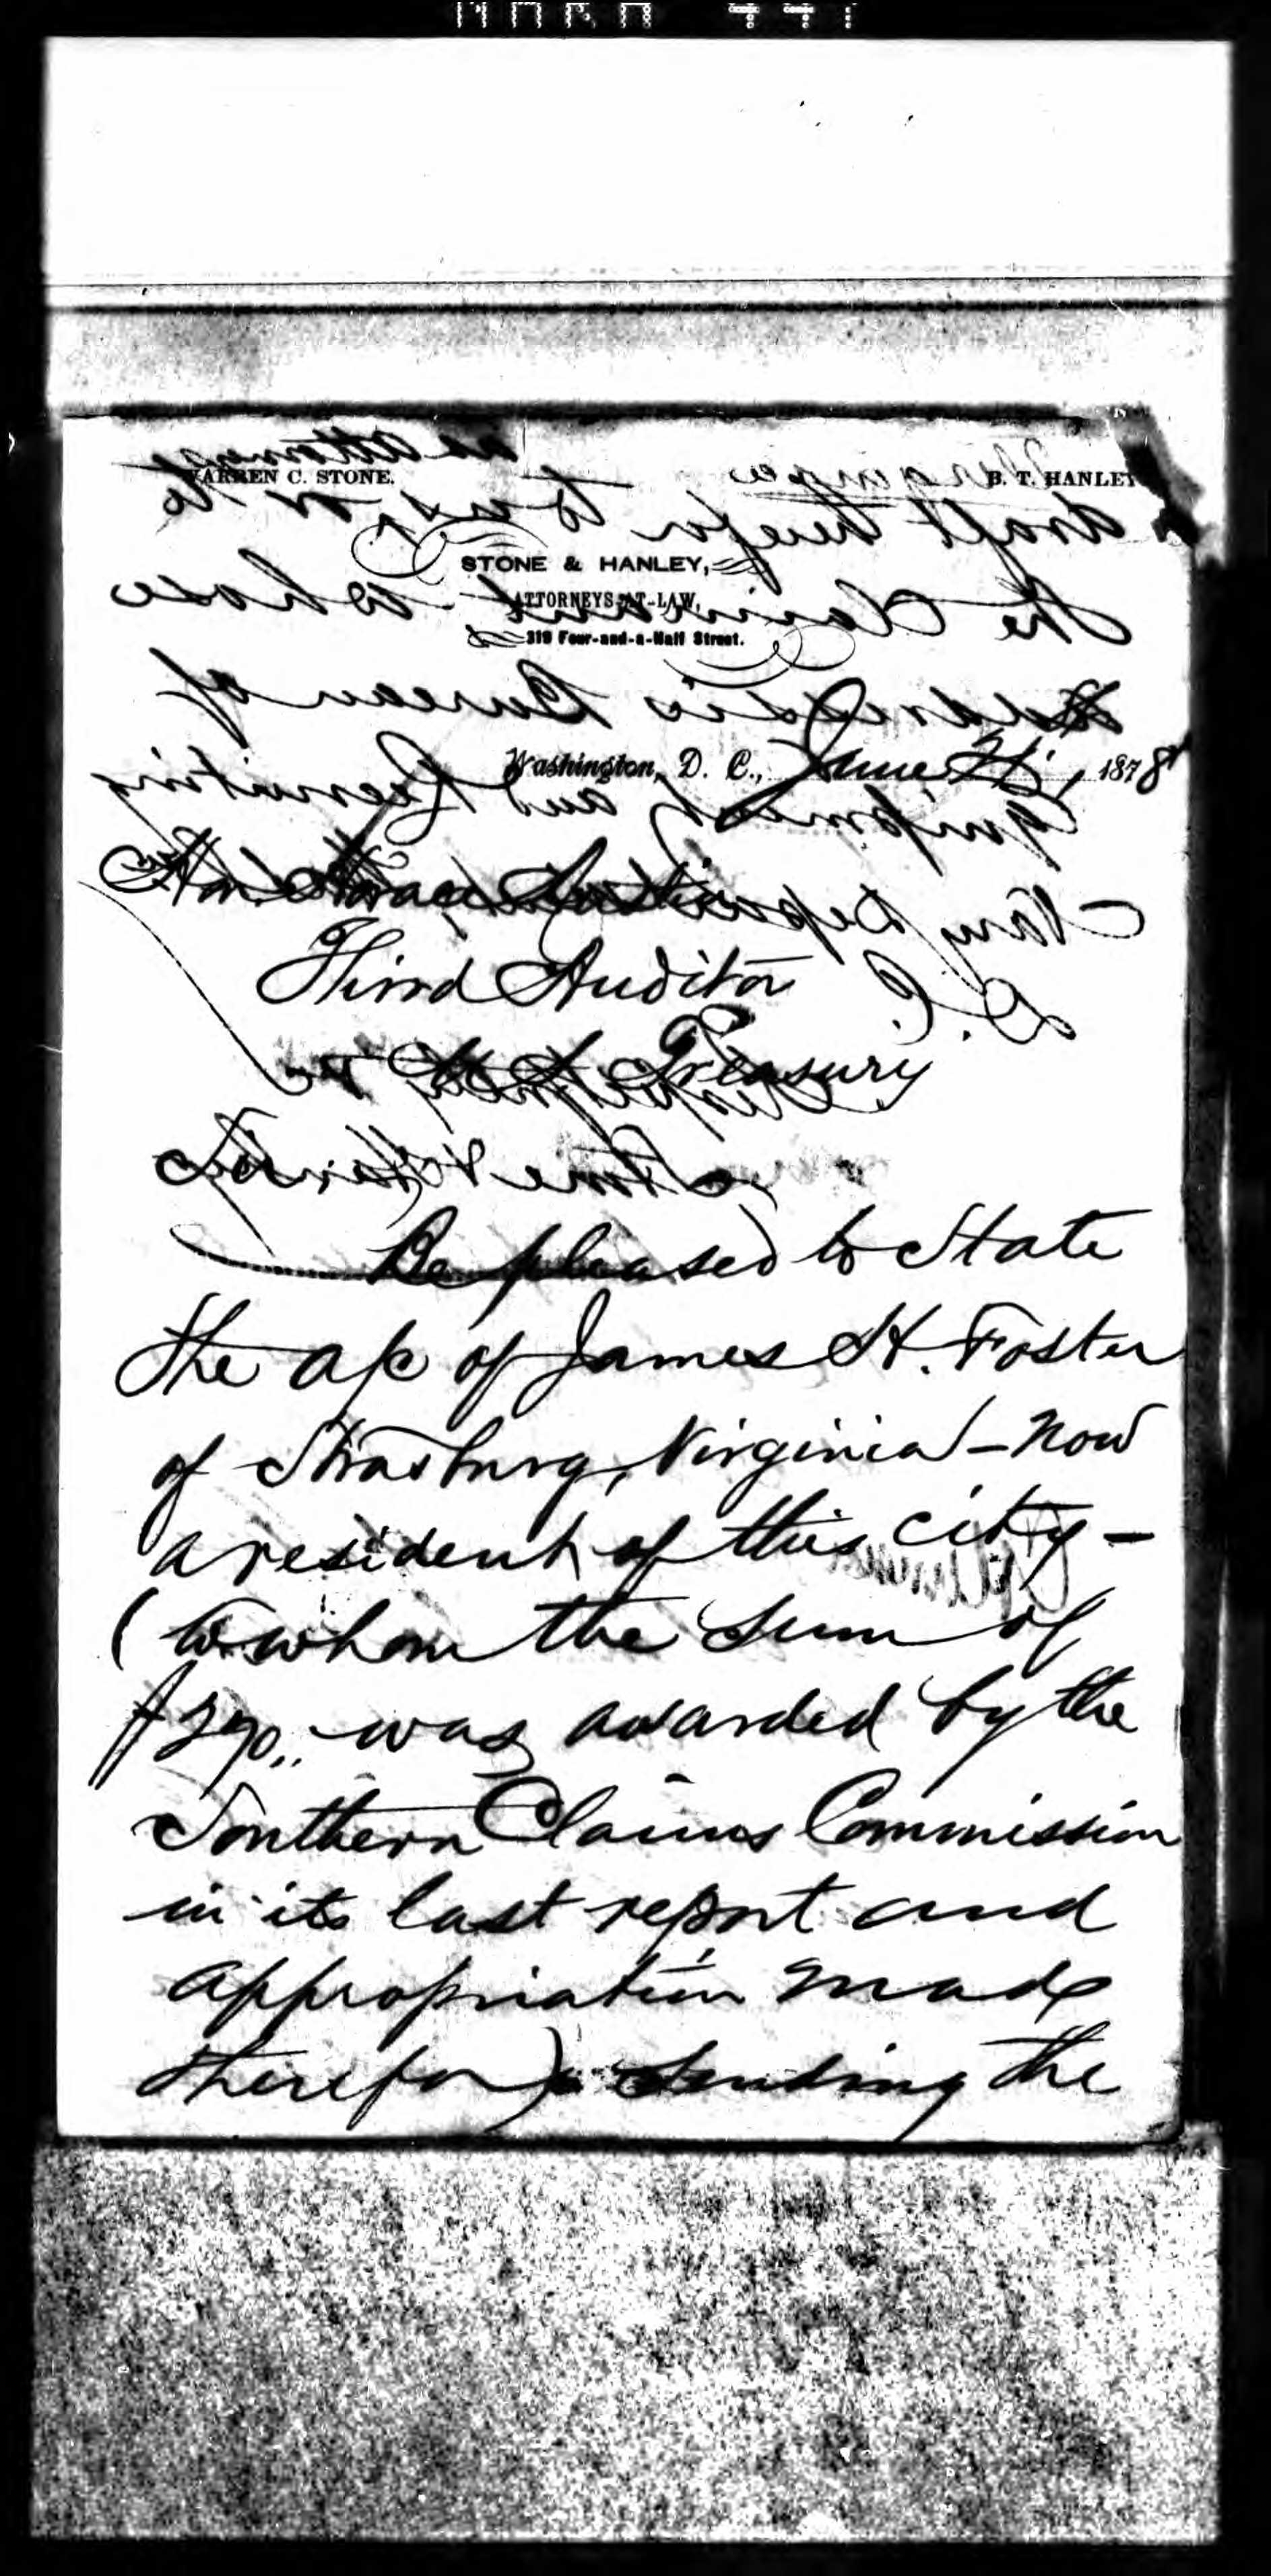 WARREN C. STONE. B. T. HANLEY
STONE & HANLEY,
ATTORNEYS-AT-LAW,
319 Four-and-a-Half Street.
Washington, D. C., June 21, 1878
Hon. Horace Austin
Third Auditor
Treasury
Sir:
Be pleased to State
the a/c of James H. Foster
of Strasburg, Virginia - now
a resident of this city -
(to whom the sum of
was awarded by the
Southern Claims Commission
in its last report and
appropriation made
therefor) sending the
draft therefor to us, as attorneys or to
the Claimant, whose
address is Bureau of
Equipment and Recruiting
Navy Dept
D.C.
Respectfully
Stone & Hanley